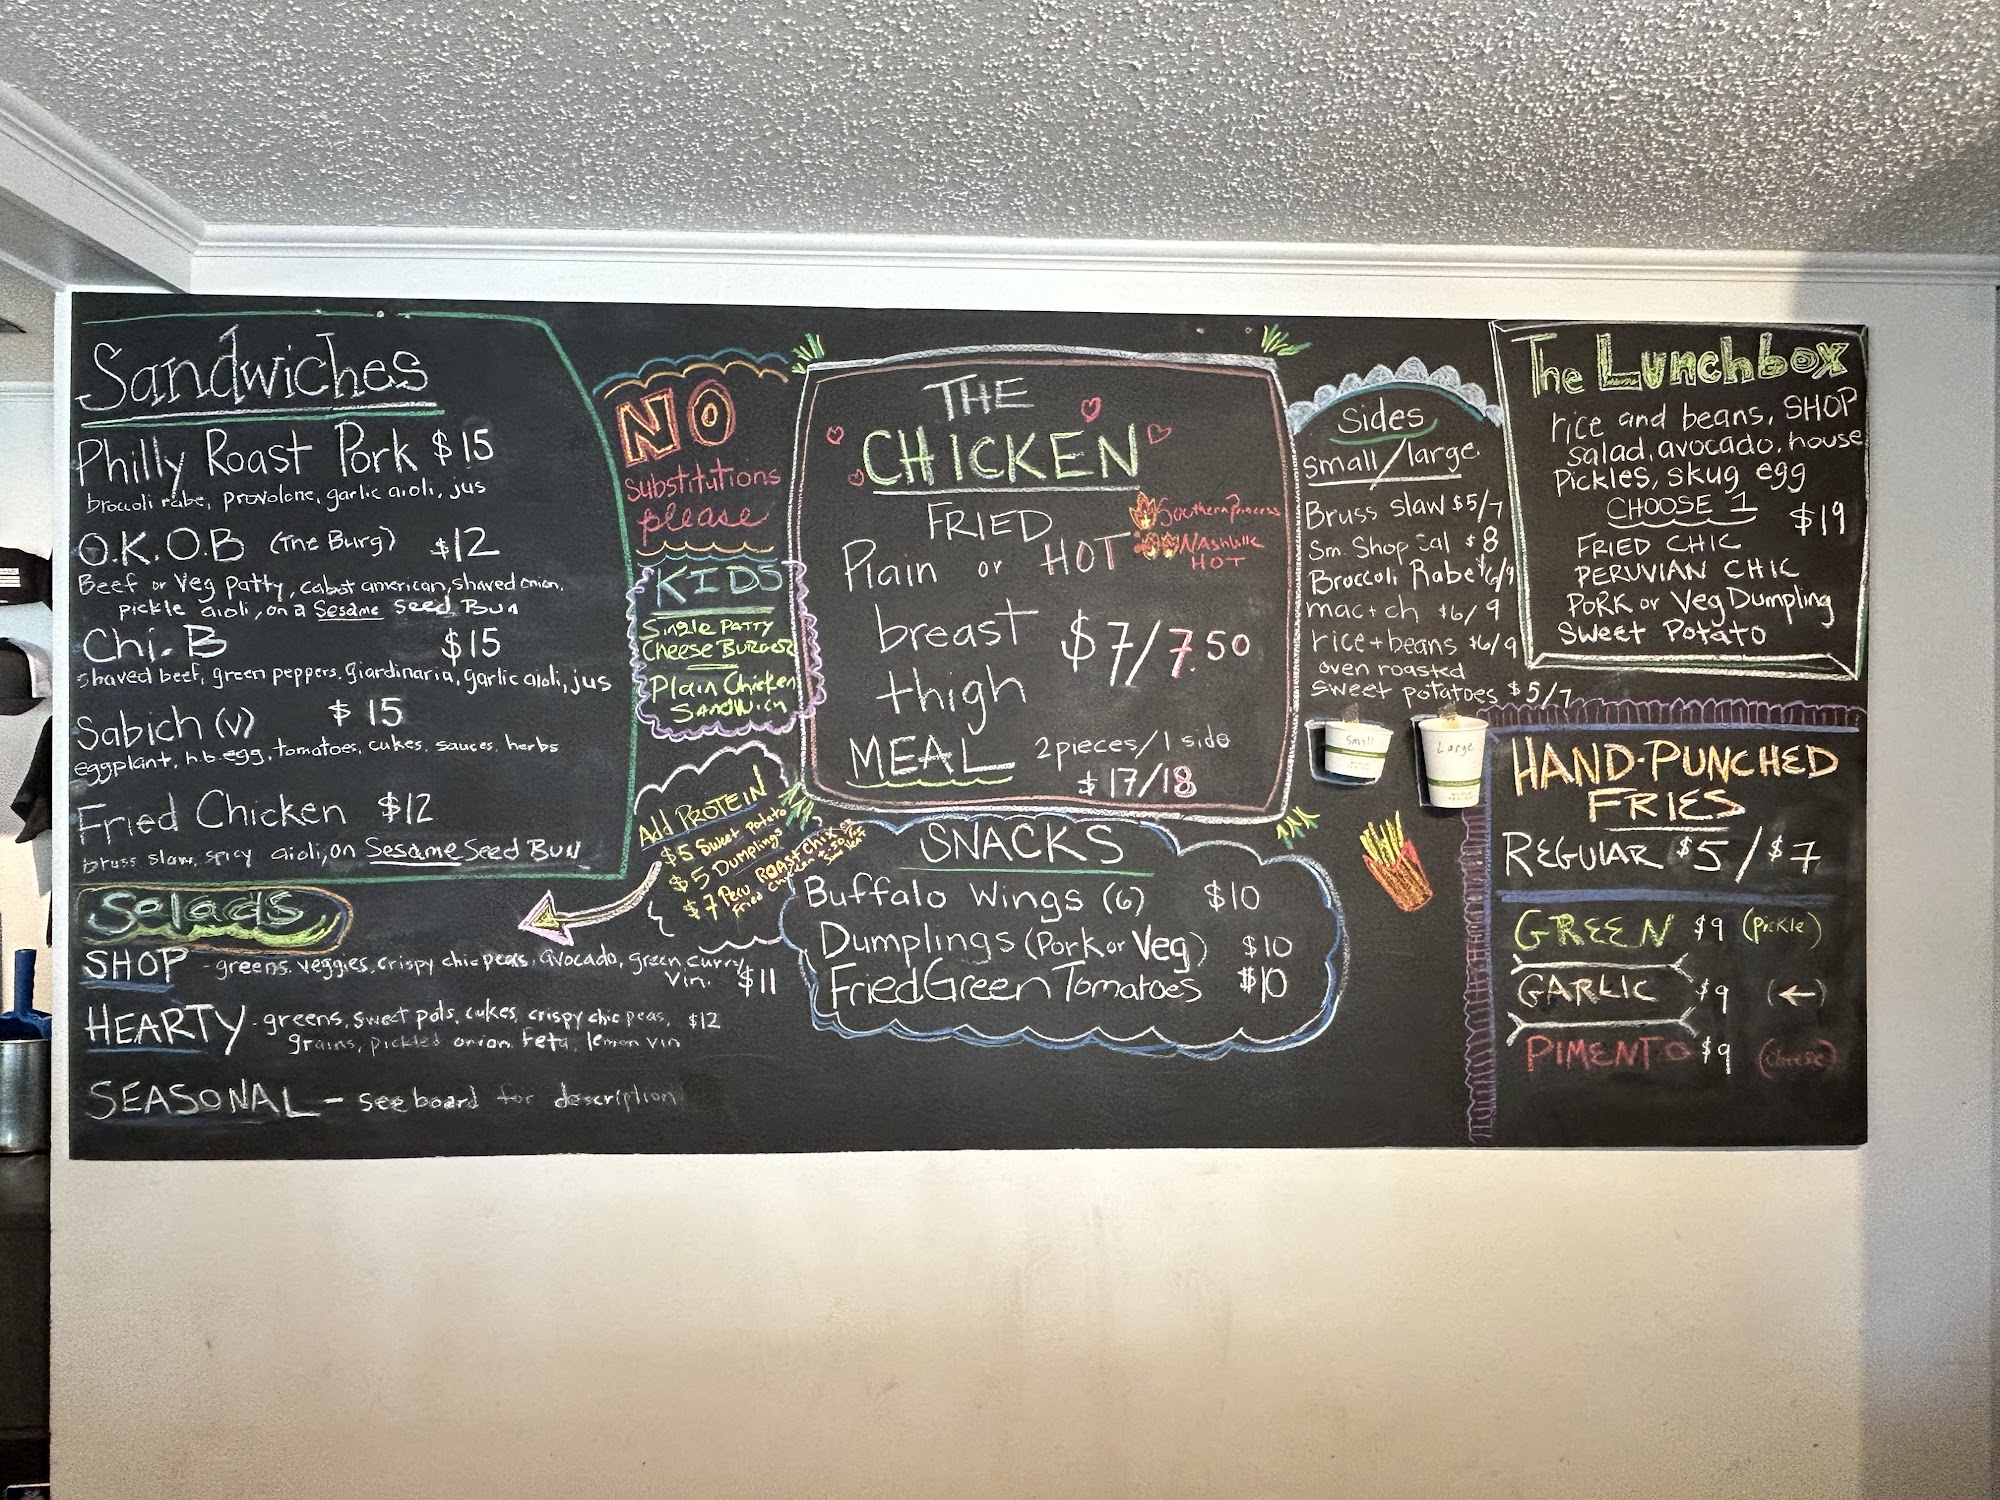 Sandwiches
Philly Roast Pork $15
broccoli rabe, provolone, garlic aioli, jus
O.K.O.B (The Burg) $12
Beef or Veg Patty, cabot american, shaved onion,
pickle aioli, on a Sesame Seed Bun
Chi.B $15
shaved beef, green peppers, giardinaria, garlic aioli, jus
Sabich (v) $15
eggplant, h.b. egg, tomatoes, cukes, sauces, herbs
Fried Chicken $12
bruss slaw, spicy aioli, on Sesame Seed Bun
Salads
SHOP - greens, veggies, crispy chic peas, avocado, green curry
vin. $11
HEARTY - greens, sweet pots, cukes, crispy chic peas, $12
grains, pickled onion, feta, lemon vin
SEASONAL - see board for description
NO
substitutions
please
KIDS
Single Patty
Cheese Burger
Plain Chicken
Sandwich
Add PROTEIN
$5 Sweet Potato
$5 Dumplings
$7 Peru ROAST Chix or
Fried Chicken
THE
CHICKEN
FRIED
Southern Princess
Plain or HOT
NAShville
HOT
breast
$7/7.50
thigh
MEAL 2 pieces/1 side
$17/18
SNACKS
Buffalo Wings (6) $10
Dumplings (Pork or Veg) $10
Fried Green Tomatoes $10
Sides
small/large
Bruss Slaw $5/7
Sm. Shop Sal $8
Broccoli Rabe $6/9
mac+ch $6/9
rice+beans $6/9
oven roasted
sweet potatoes $5/7
Small
Large
The Lunchbox
rice and beans, SHOP
salad, avocado, house
Pickles, skug egg
CHOOSE 1
$19
FRIED CHIC
PERUVIAN CHIC
PORK or Veg Dumpling
Sweet Potato
HAND-PUNCHED
FRIES
REGULAR $5/$7
GREEN $9 (pickle)
GARLIC $9 (←)
PIMENTO $9 (cheese)